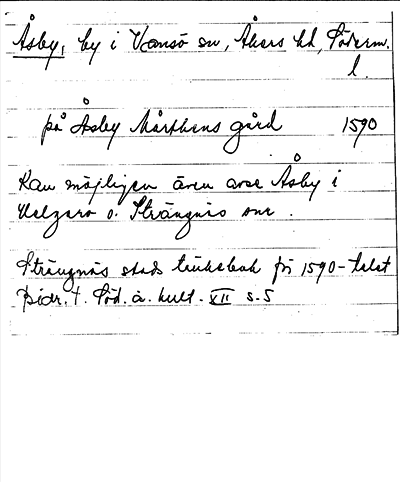 Åsby, by i Vansö sn, Åkers hd, Söderm.
l.
på Åsby Mårthens gård 1590
Kan möjligen även avse Åsby i
Helgaro o. Strängnäs snr.
Strängnäs stads tänkebok fr 1590-talet
Bidr. t. Söd. ä. kult. XII s. 5